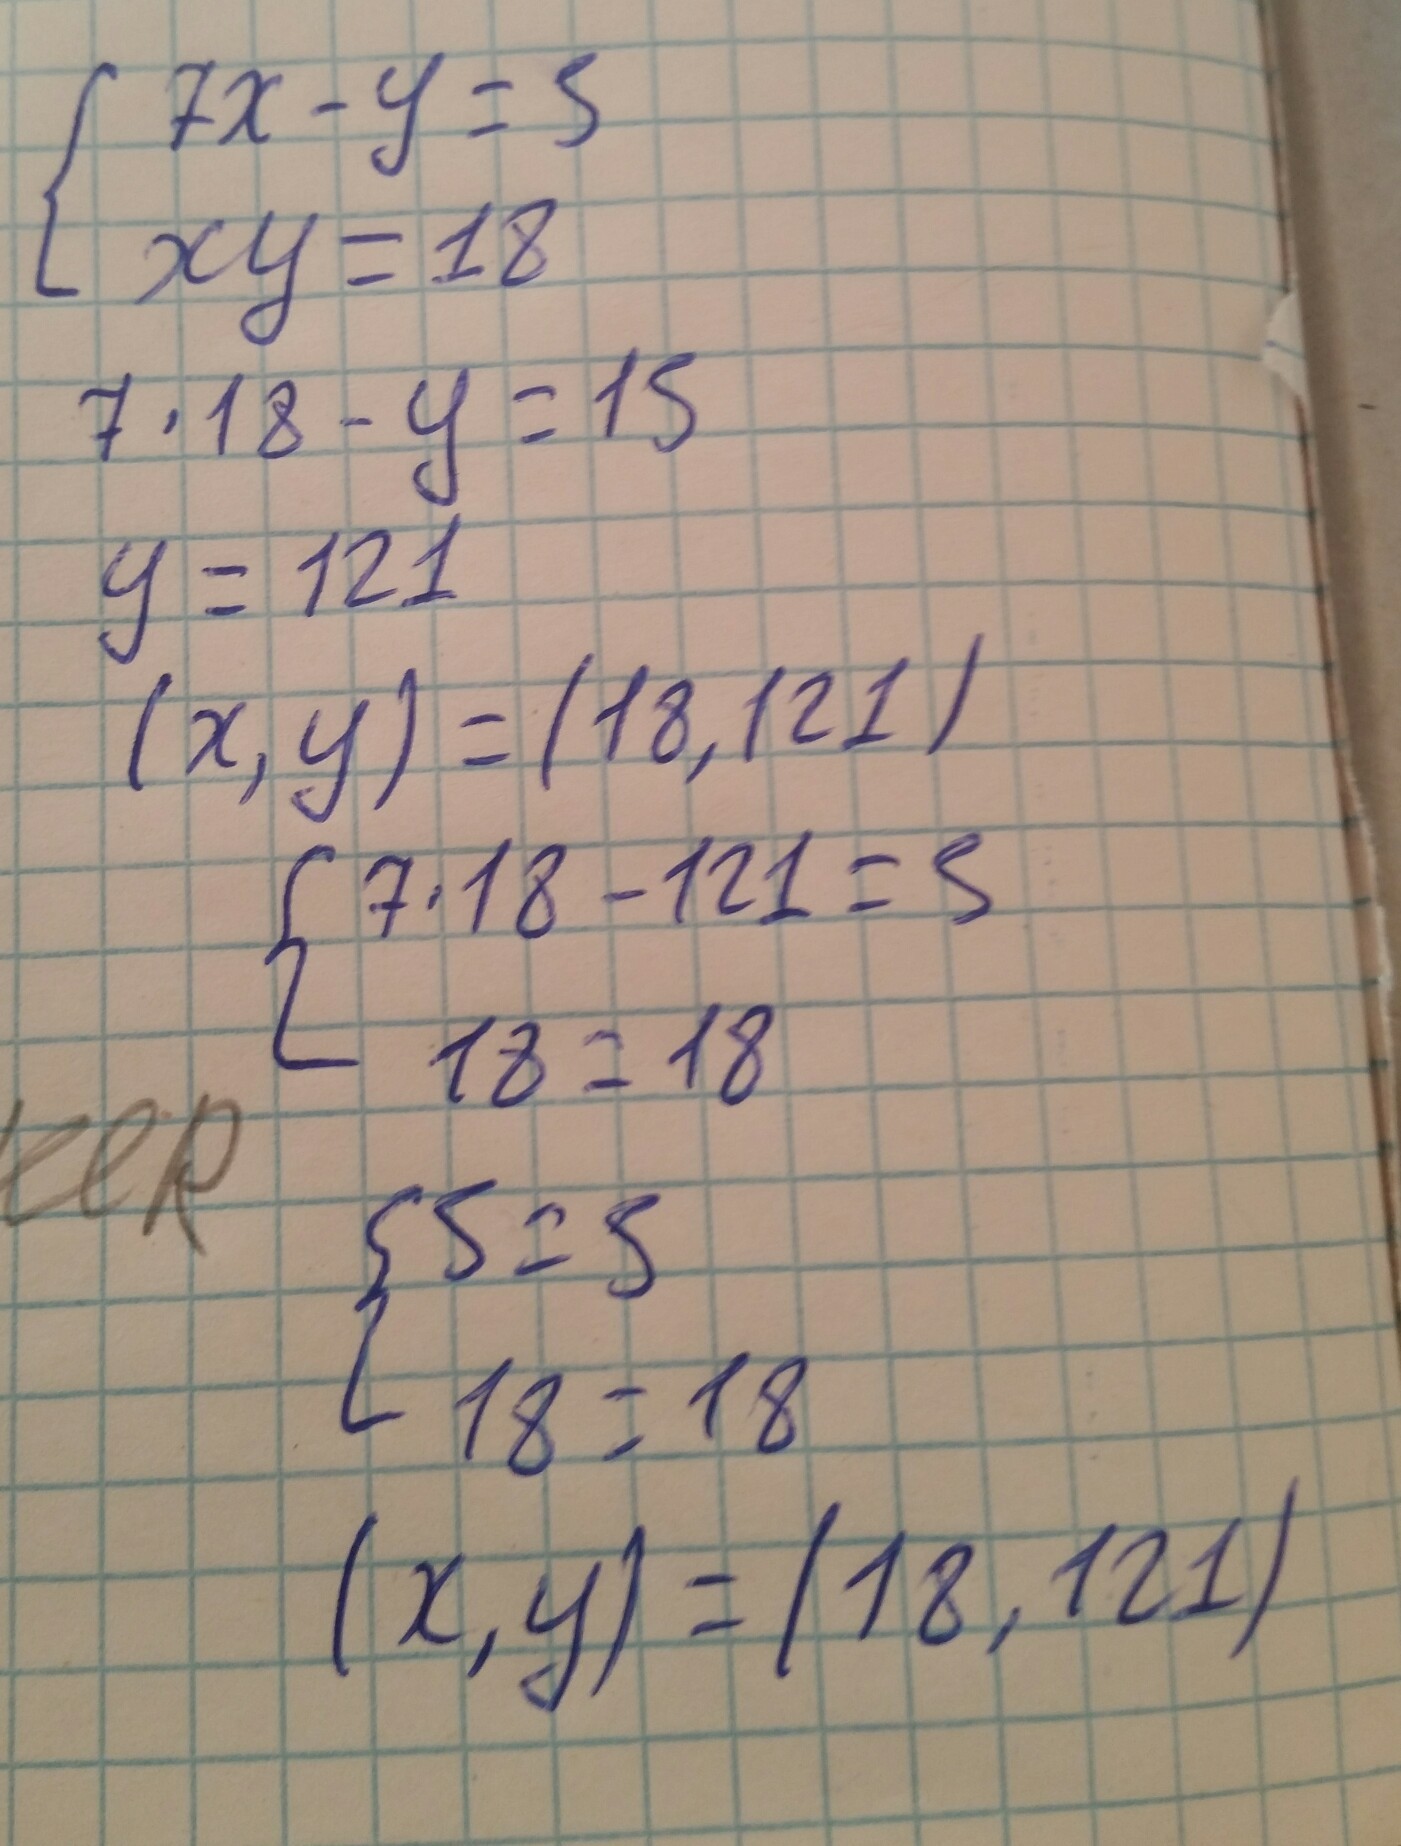 7x - y = 5
xy = 18
7·18 - y = 15
y = 121
(x, y) = (18, 121)
7·18 - 121 = 5
18 = 18
5 = 5
18 = 18
(x, y) = (18, 121)